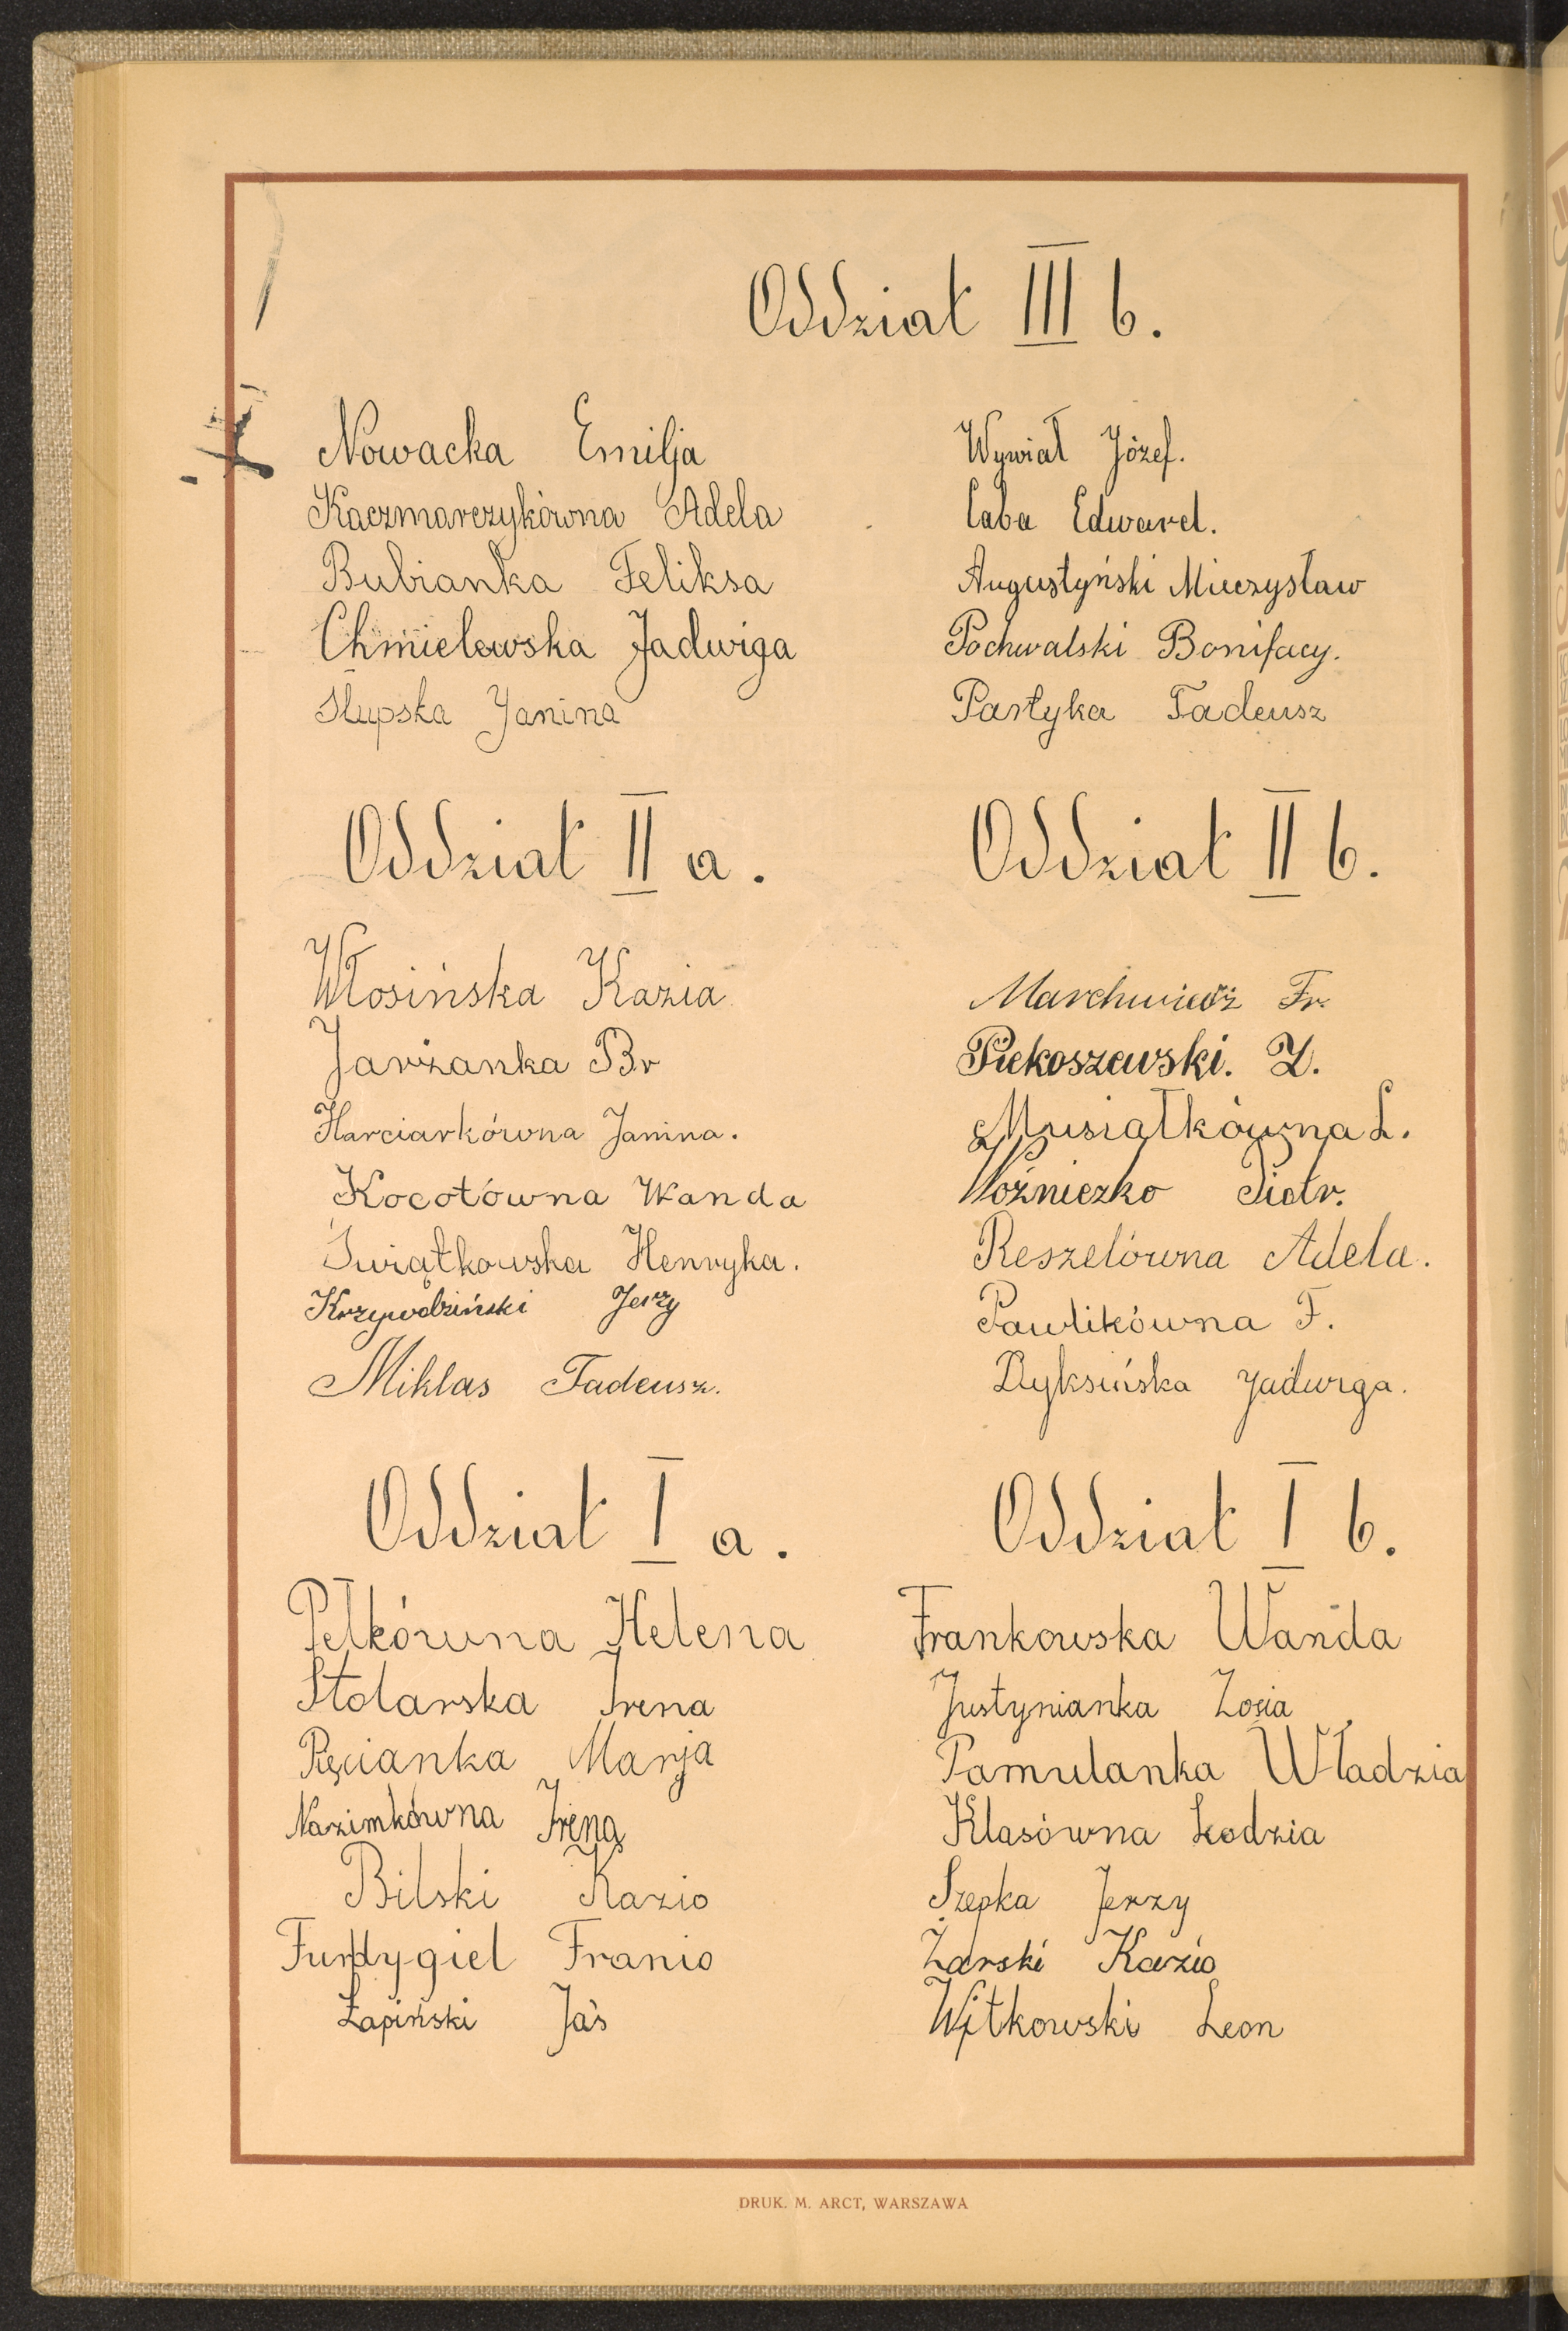 Oddział III b.
Nowacka Emilja
Kaczmarczykówna Adela
Bubianka Feliksa
Chmielewska Jadwiga
Słupska Janina
Wywiał Józef.
Caba Edward.
Augustyński Mieczysław
Pochwalski Bonifacy.
Partyka Tadeusz
Oddział II a.
Włosińska Kazia
Jarżanka Br
Harciarkówna Janina.
Kocotówna Wanda
Świątkowska Henryka.
Krzywodziński Jerzy
Miklas Tadeusz.
Oddział II b.
Fr.
Piekoszewski. Z.
Musiałkówna L.
Woźniczko Piotr.
Reszelówna Adela.
Pawlikówna F.
Dyksińska Jadwiga.
Oddział I a.
Pełkówna Helena
Stolarska Irena
Pięcianka Marja
Nazimkówna Irena
Bilski Kazio
Furdygiel Franio
Łapiński Jaś
Oddział I b.
Frankowska Wanda
Justynianka Zosia
Pamulanka Władzia
Klasówna Lodzia
Szepka Jerzy
Żarski Kazio
Witkowski Leon
DRUK. M. ARCT, WARSZAWA